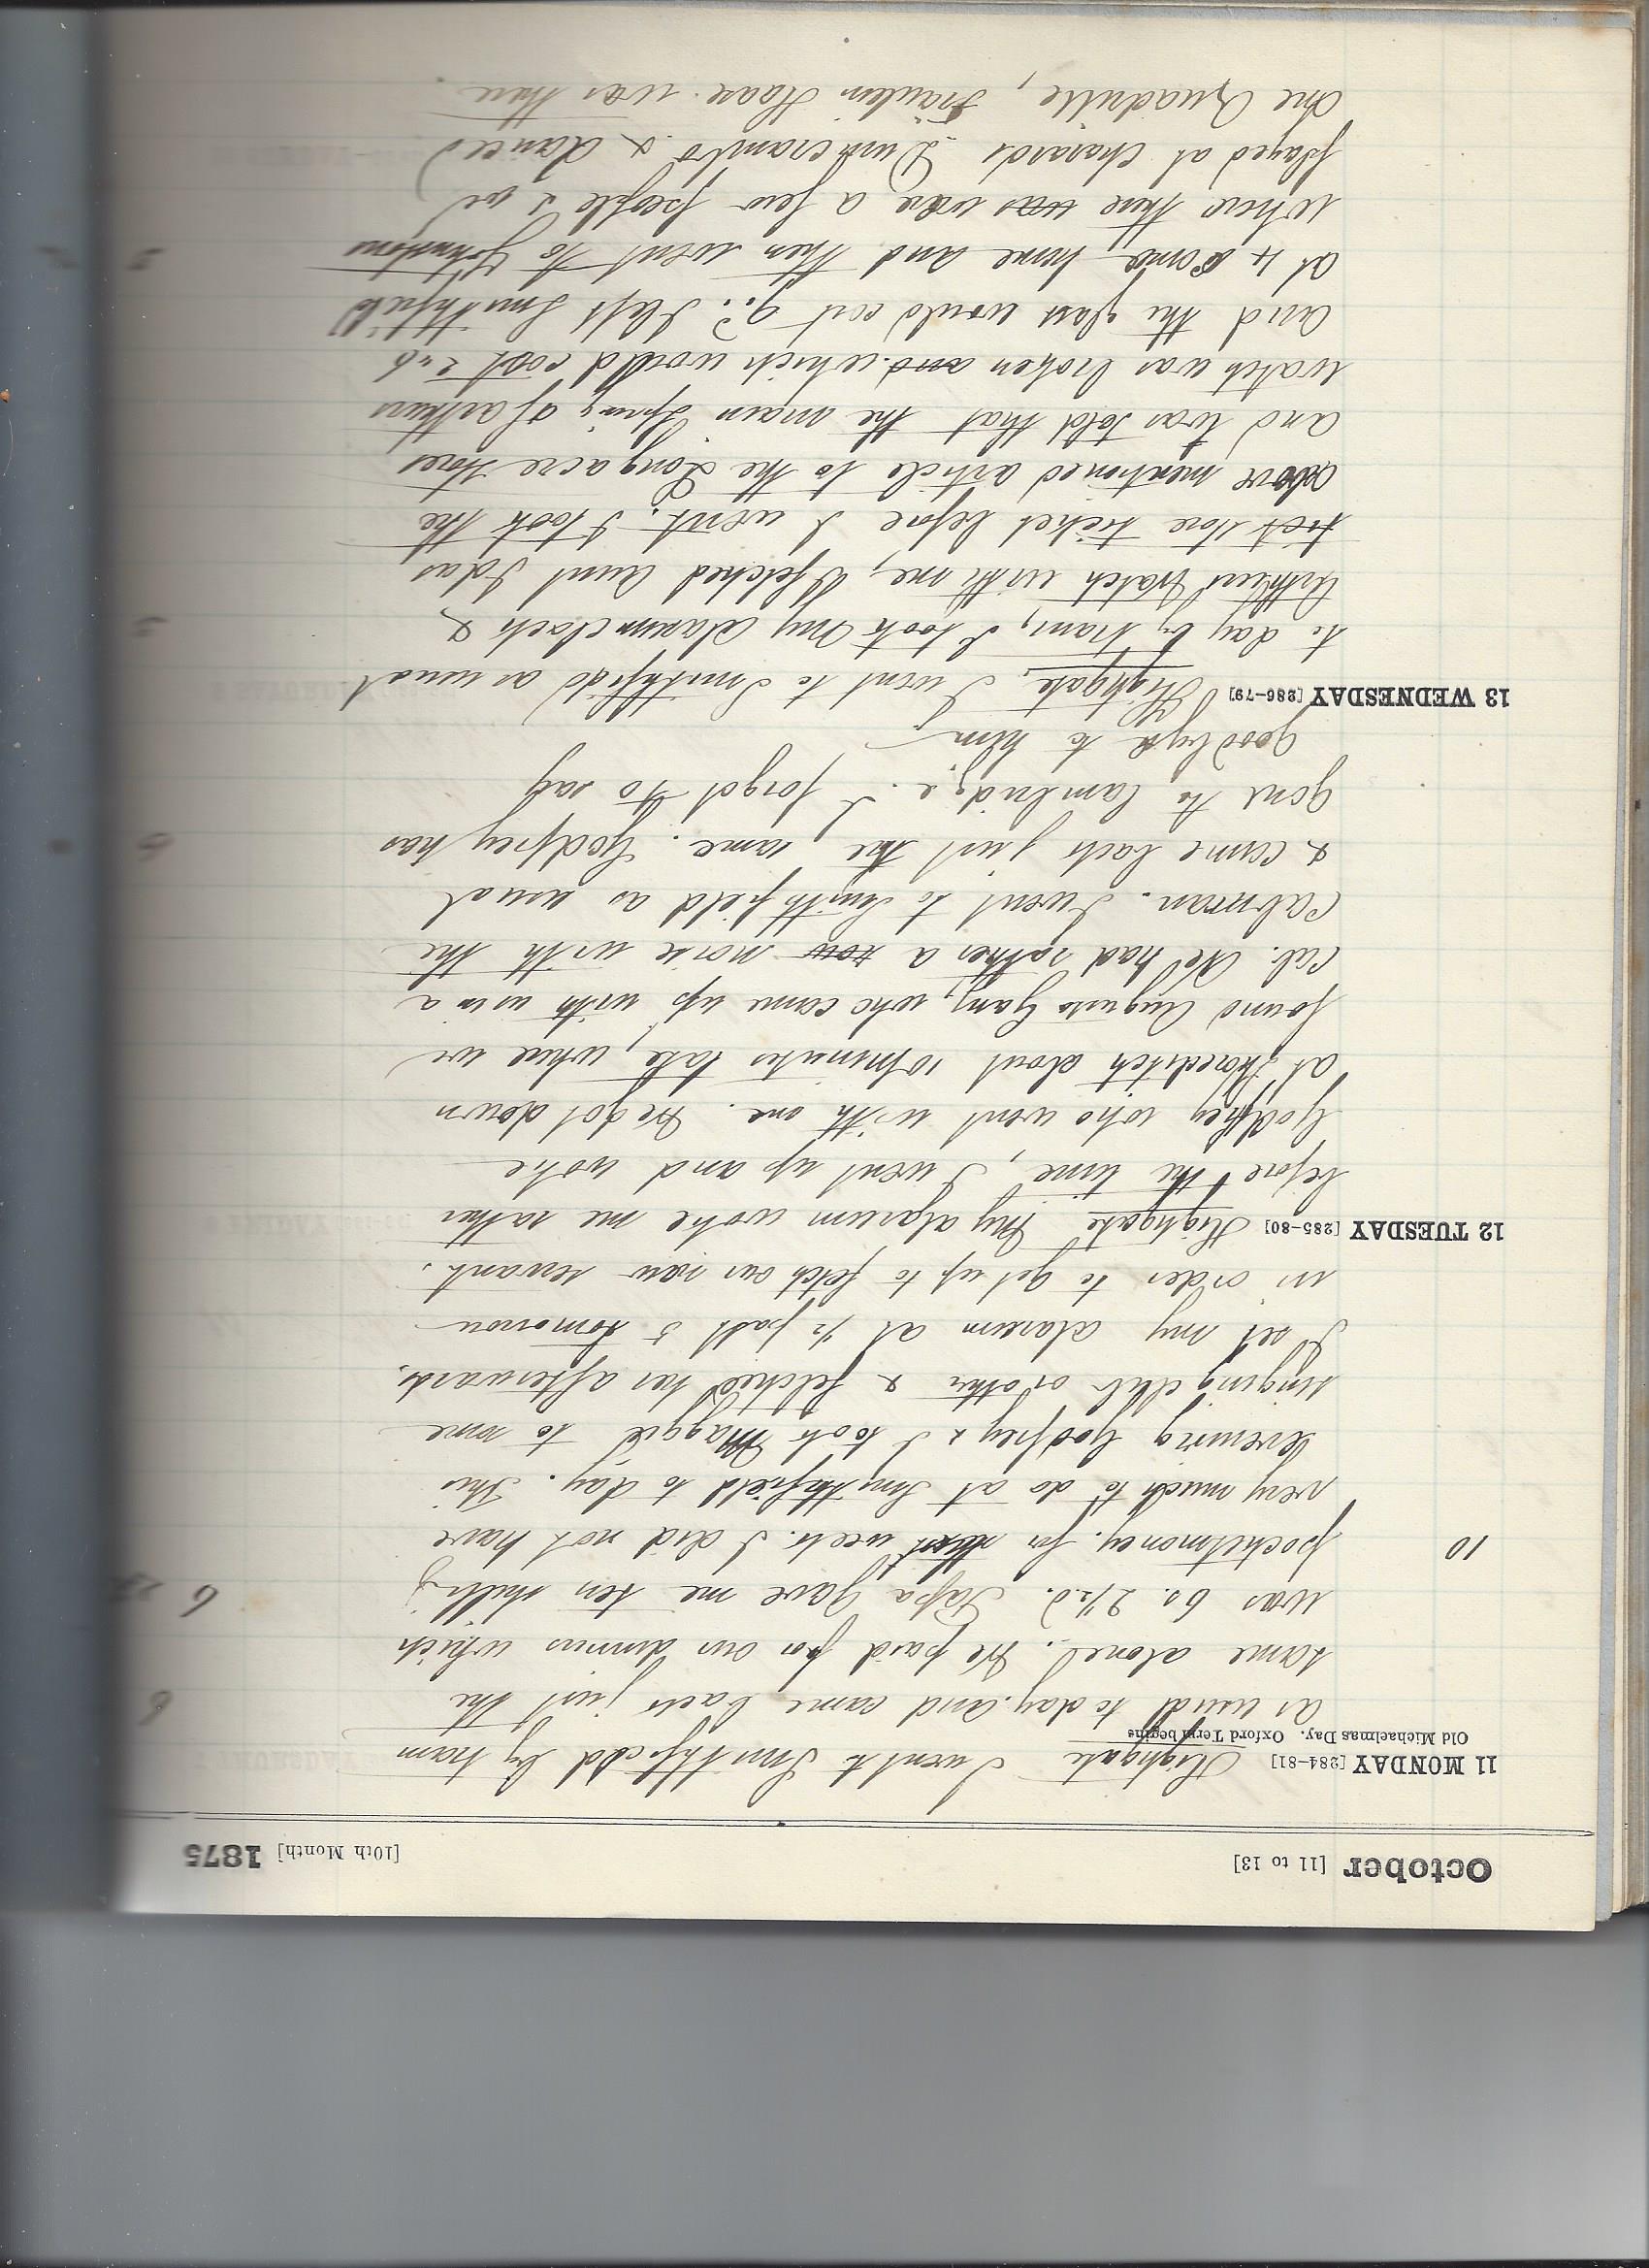 October [11 to 13] [10th Month] 1875
11 MONDAY [284–81] Highgate I went to Smithfield by tram
Old Michaelmas Day. Oxford Term begins
as usual to day. and came back just the
same alone. We paid for our dinners which
was 6s. 2½d. Papa gave me ten shilling 6
10 pocketmoney. for next week. I did not have
very much to do at Smithfield to day. This
evening Godfrey & I took Maggie to some
singing club or other & fetched her afterwards.
I set my alarum at ½ past 5 tomorrow
in order to get up to fetch our new servant.
12 TUESDAY [285–80] Highgate My alarum woke me rather
before the time, I went up and woke
Godfrey who went with me. We got down
at Shoreditch about 10 minutes late, where we
found Augusta Gany, who came up with us in a
Cab. We had rather a row noise with the
Cabman. I went to Smithfield as usual
& came back just the same. Godfrey has
gone to Cambridge. I forgot to say
Goodbye to him
13 WEDNESDAY [286–79] Highgate, I went to Smithfield as usual
to day by tram, I took my alarum clock &
Arthurs Watch with me, I fetched Aunt Idas
store ticket before I went. I took the
above mentioned article to the Longacre stores
and was told that the main spring of arthurs
watch was broken and which would cost 2"6
and the glass would cost 9d. I left Smithfield
at 4 came home and then went to Johnstons
where there was were a few people & we
played at charards Dumcrambo & danced
one Quadrille, Fraulien Haase was there.